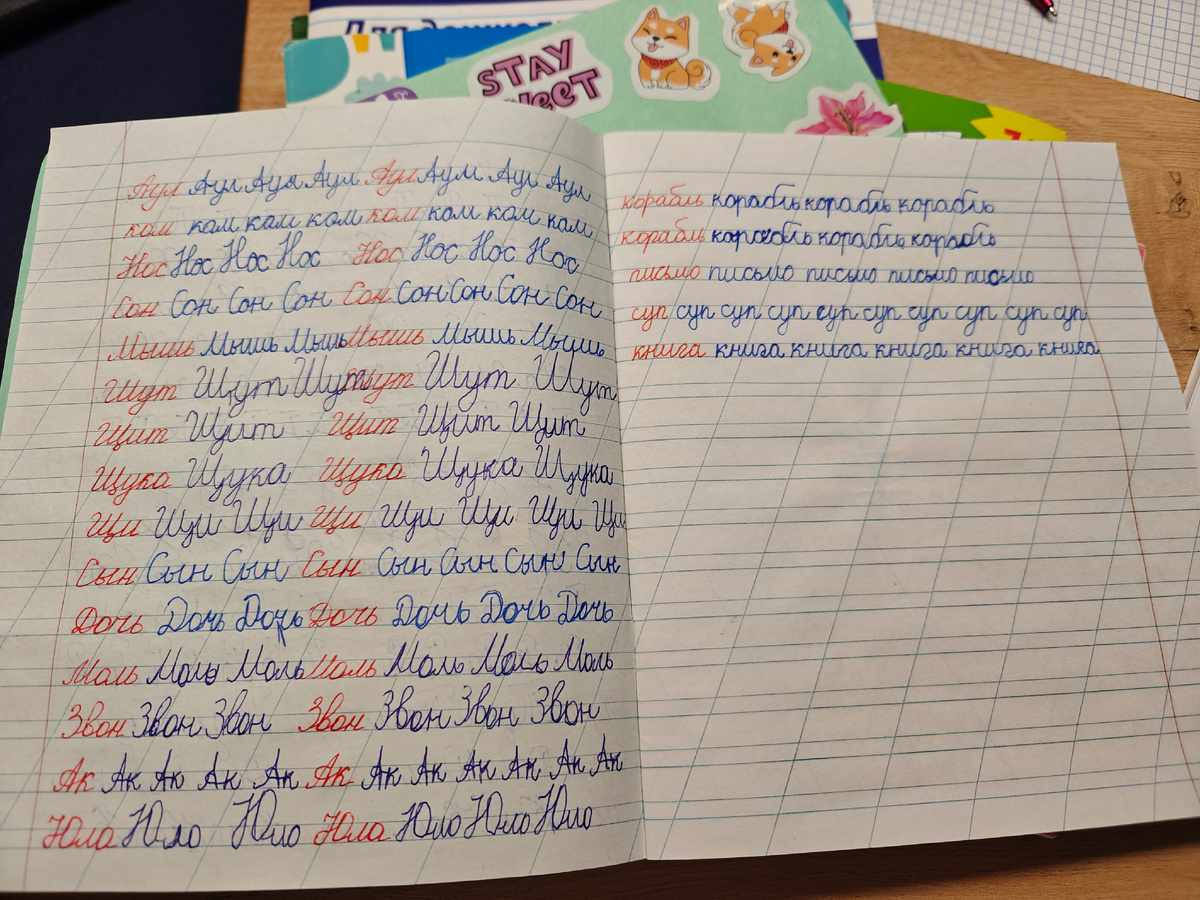 STAY
SWEET
Аул Аул Аул Аул Аул Аул Аул Аул
ком ком ком ком ком ком ком ком
Нос Нос Нос Нос Нос Нос Нос Нос
Сон Сон Сон Сон Сон Сон Сон Сон Сон
Мышь Мышь Мышь Мышь Мышь Мышь
Шут Шут Шут Шут Шут Шут
Щит Щит Щит Щит Щит
Щука Щука Щука Щука Щука
Щи Щи Щи Щи Щи Щи Щи Щи
Сын Сын Сын Сын Сын Сын Сын Сын
Дочь Дочь Дочь Дочь Дочь Дочь Дочь
Моль Моль Моль Моль Моль Моль Моль
Звон Звон Звон Звон Звон Звон Звон
Ак Ак Ак Ак Ак Ак Ак Ак Ак Ак Ак Ак
Юла Юла Юла Юла Юла Юла Юла
корабль корабль корабль корабль
корабль корабль корабль корабль
письмо письмо письмо письмо письмо
суп суп суп суп суп суп суп суп суп суп
книга книга книга книга книга книга